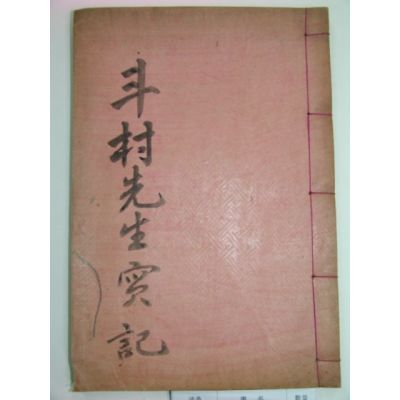 斗村先生实記